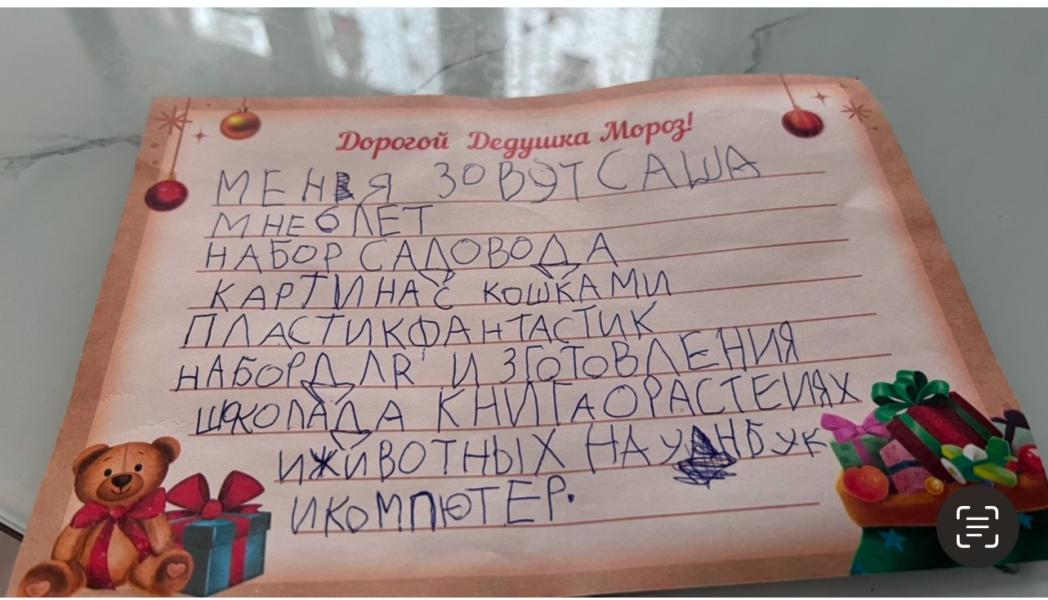 Дорогой Дедушка Мороз!
МЕНЯ ЗОВУТ САША
МНЕ 6 ЛЕТ
НАБОР САДОВОДА
КАРТИНА С КОШКАМИ
ПЛАСТИКФАНТАСТИК
НАБОР ДЛЯ ИЗГОТОВЛЕНИЯ
ШОКОЛАДА КНИГА О РАСТЕИЯХ
И ЖИВОТНЫХ НАУНБУК
И КОМПЮТЕР.